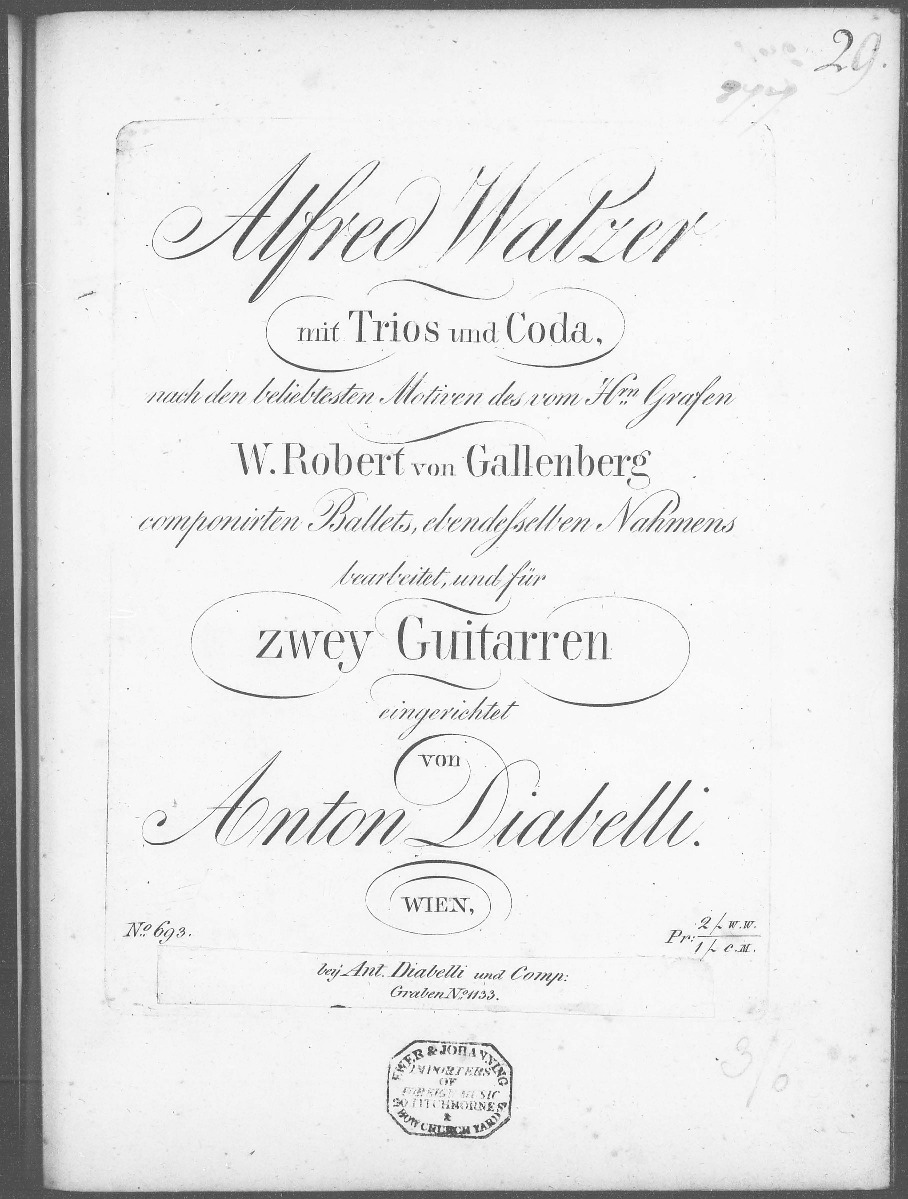 29.
Alfred Walzer
mit Trios und Coda,
nach den beliebtesten Motiven des vom Hrn. Grafen
W. Robert von Gallenberg
componirten Ballets, ebendesselben Nahmens
bearbeitet, und für
zwey Guitarren
eingerichtet
von
Anton Diabelli.
WIEN,
No. 693.
Pr: 2 f. W.W.
1 f. C.M.
beÿ Ant. Diabelli und Comp:
Graben No. 1133.
3/6
EWER & JOHANNING
IMPORTERS
OF
FOREIGN MUSIC
20 TITCHBORNE S
&
BOW CHURCH YARD